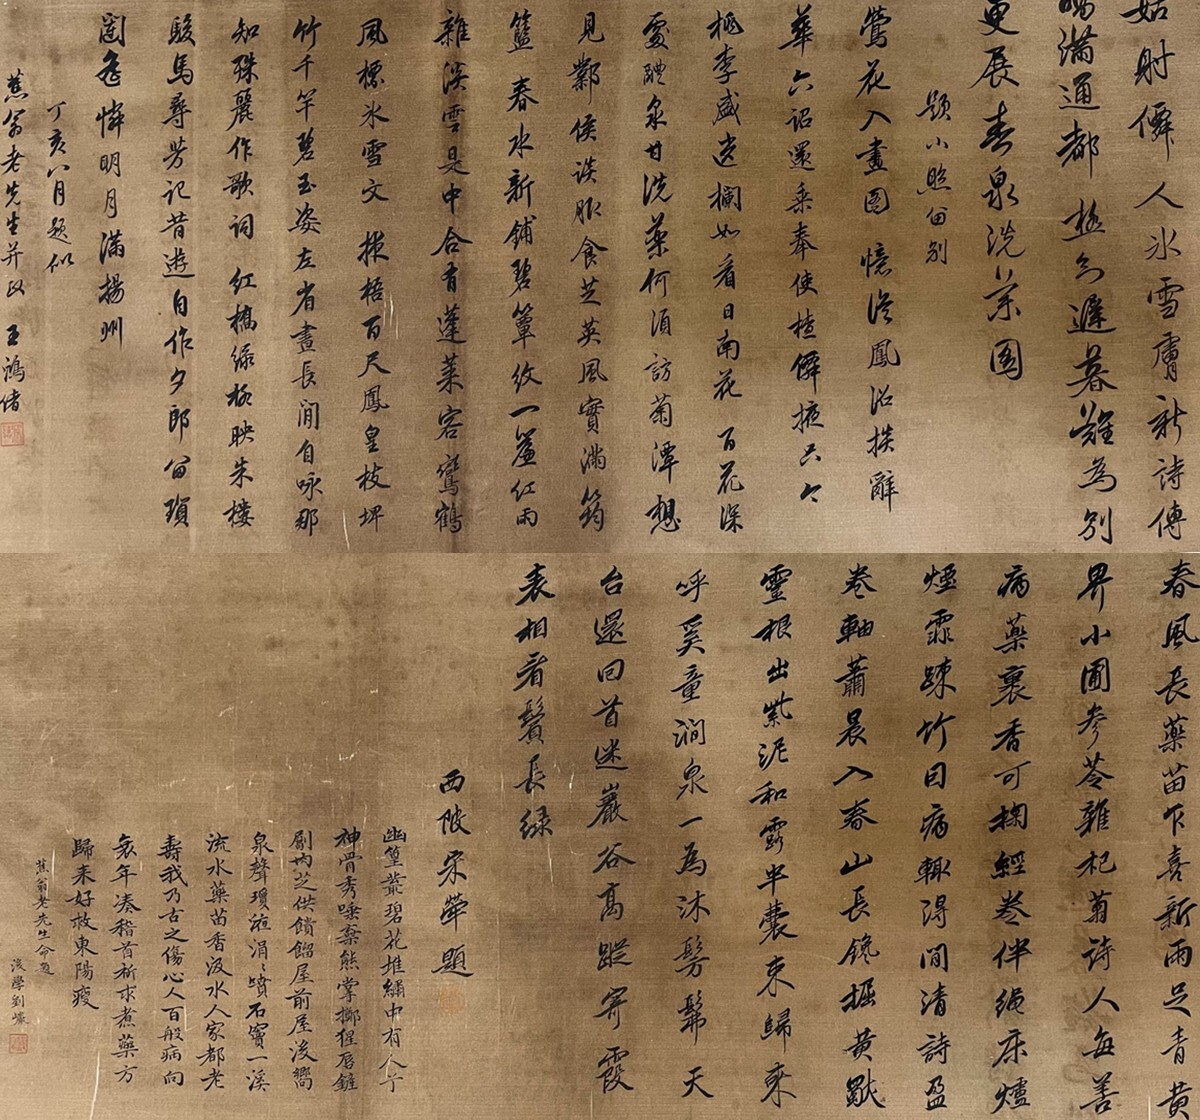 姑射僊人冰雪膚新詩傳
滿通都極知遲暮難為別
更展春泉洗藥圖
題小照留別
鶯花入畫圖憶從鳳沼掞辭
華六詔還乘奉使槎僊掖只今
桃李盛迭欄如看日南花百花深
處醴泉甘洗藥何須訪菊潭想
見鄴侯談服食芝英風實滿筠
籃春水新鋪碧簟紋一簾紅雨
雜溪雲是中合有蓬萊客鸞鶴
風標冰雪文拱梧百尺鳳皇枝坪
竹千竿碧玉姿左省晝長閒自咏那
知殊麗作歌詞紅橋綠柳映朱樓
駿馬尋芳記昔遊自作夕郎留瑣
闥卷憐明月滿揚州
丁亥八月題似
蕉翁老先生并政王鴻緒
春風長藥苗乍喜新雨足青黄
界小圃參苓雜杞菊詩人每善
病藥裹香可掬經卷伴繩床爐
煙霏踈竹因病輙得閒清詩盈
卷軸蕭晨入春山長鑱掘黄獨
靈根出紫泥和露半囊束歸來
呼奚童澗泉一為沐髣髴天
台還回首迷巖谷高蹤寄霞
表相看鬢長綠
西陂宋犖題
幽篁叢碧花堆繡中有人兮
神骨秀唾棄熊掌擲猩唇鏟
劚肉芝供饋餾屋前屋後嚮
泉聲瓊液涓涓噴石竇一溪
流水藥苗香汲水人家都老
壽我乃古之傷心人百般病向
亥年凑稽首祈求煮藥方
歸来好救東陽瘦
蕉翁老先生命題
後學劉巖